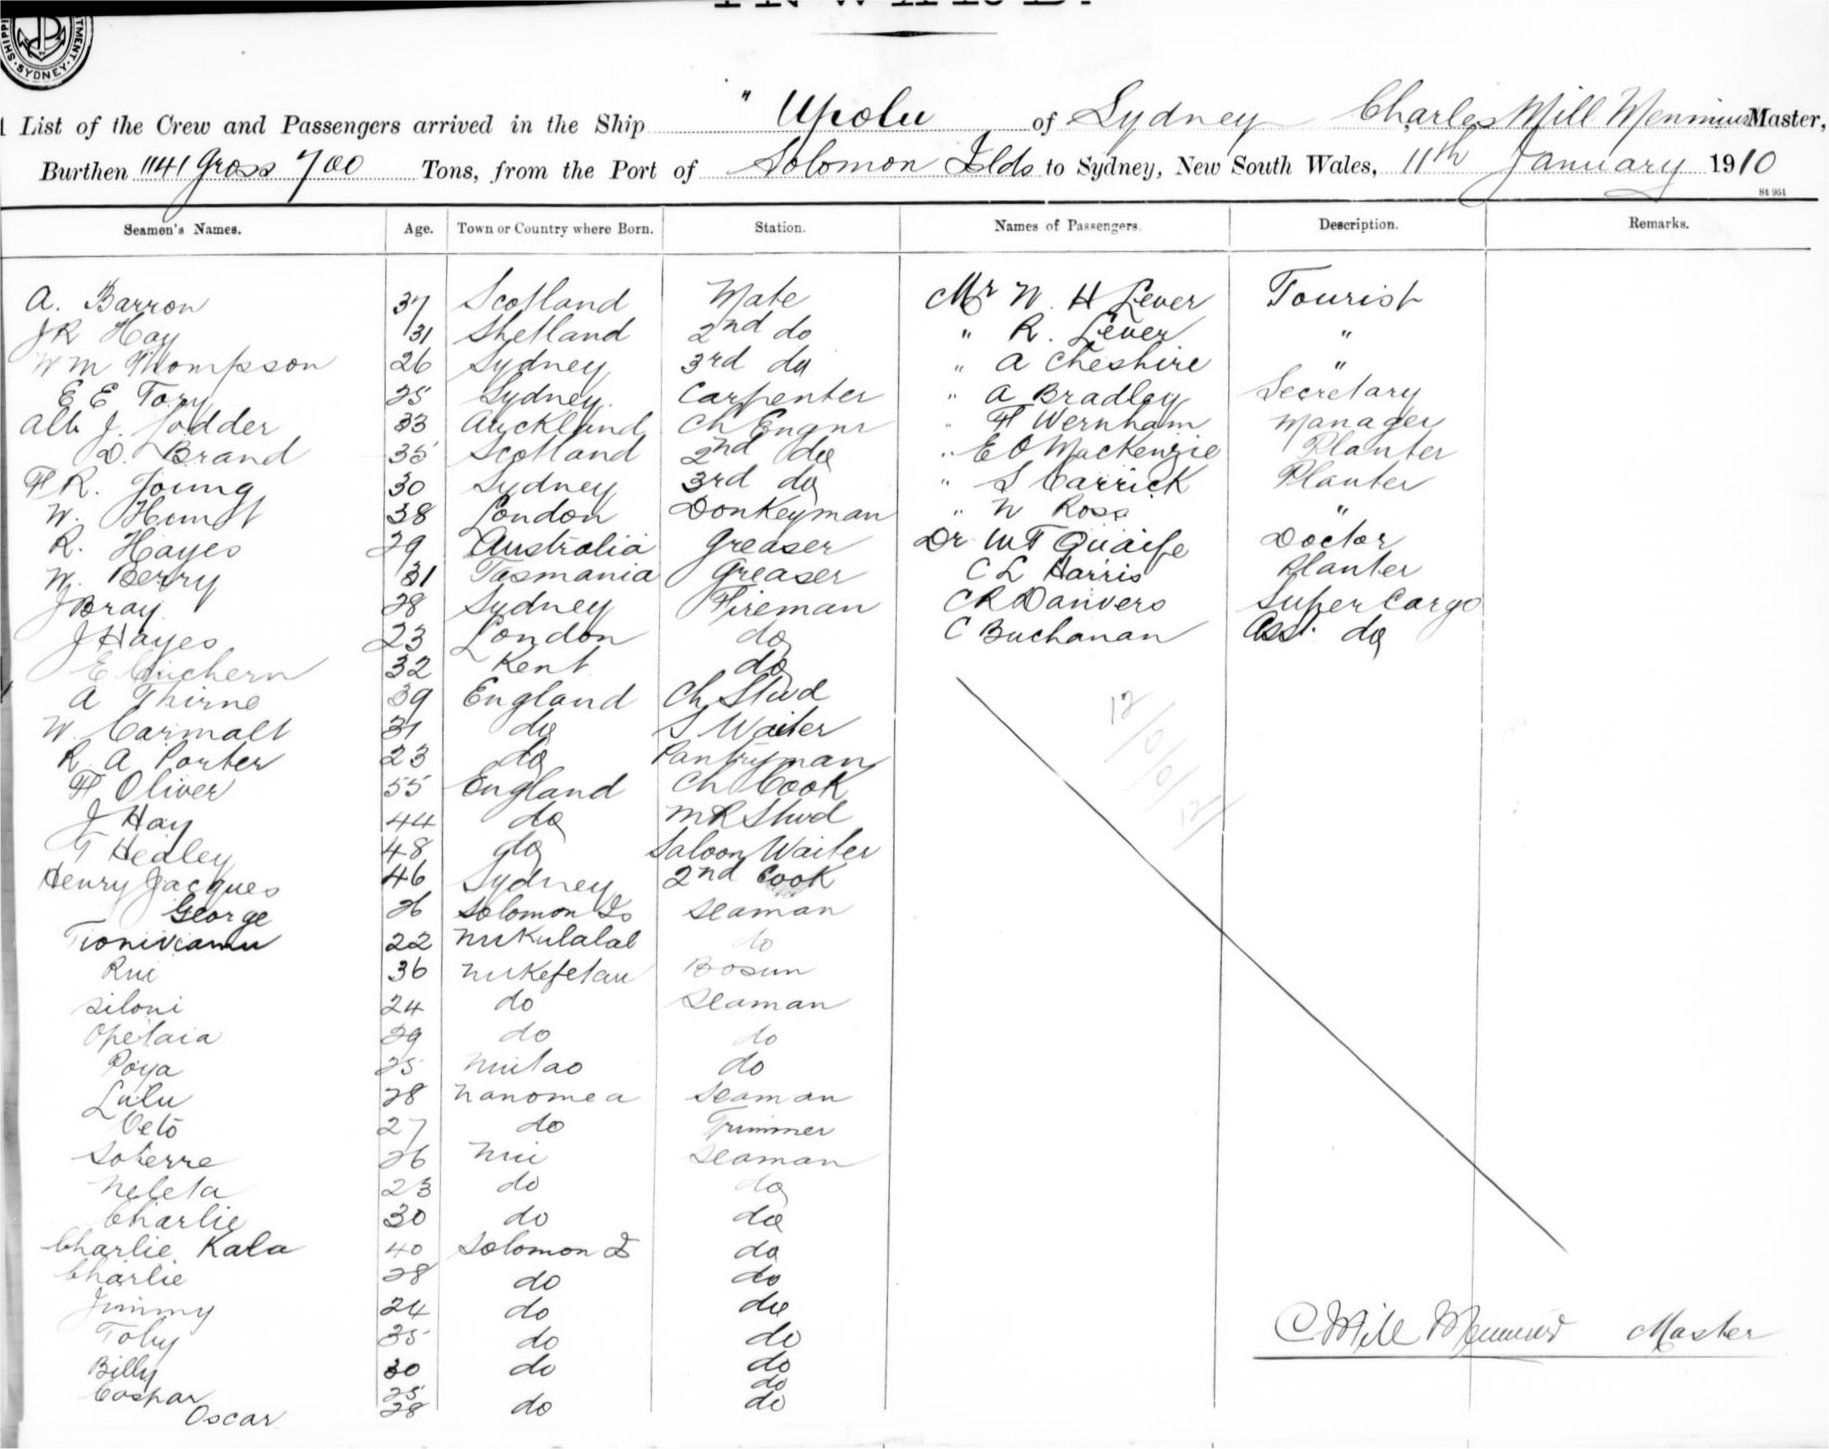 INWARD.
SHIPPI
TMENT. SYDNEY.
List of the Crew and Passengers arrived in the Ship " Upolu of Sydney Charles Mill Mennmuir Master,
Burthen 1141 Gross 700 Tons, from the Port of Solomon Islds to Sydney, New South Wales, 11th January 1910
St 951
Seamen's Names. Age. Town or Country where Born. Station. Names of Passengers. Description. Remarks.
A. Barron 37 Scotland Mate Mr W. H Lever Tourist
J R Hay 31 Shetland 2nd do " R. Lever "
Wm Thompson 26 Sydney 3rd do " A Cheshire "
E E Tory 25 Sydney Carpenter " A Bradley Secretary
Alb J. Lodder 33 Auckland Ch Engnr " H Wernham Manager
D. Brand 35 Scotland 2nd do " E O Mackenzie Planter
F R. Young 30 Sydney 3rd do " S Carrick Planter
W. Hunt 38 London Donkeyman " W Ross "
R. Hayes 29 Australia Greaser Dr W F Quaife Doctor
W. Berry 31 Tasmania Greaser C L Harris Planter
J Bray 28 Sydney Fireman C R Danvers Super Cargo
J Hayes 23 London do C Buchanan Asst. do
E 32 Kent do
A Thirne 39 England Ch Stwd
W. Carmalt 31 do S Waiter
R. A Porter 23 do Pantryman
H Oliver 55 England Ch Cook
J Hay 44 do M R Stwd
T Hedley 48 do Saloon Waiter
Henry Jacques 46 Sydney 2nd Cook
George 26 Solomon Is Seaman
22 Nukulalal do
Rui 36 Nukefetau Bosun
Siloni 24 do Seaman
Opetaia 29 do do
Poya 25 Niutao do
Lulu 28 Nanomea Seaman
27 do Trimmer
Soterre 26 Nui Seaman
Neleta 23 do do
Charlie 30 do do
Charlie Kala 40 Solomon Is do
Charlie 28 do do
Jimmy 24 do do
Toby 35 do do
Billy 30 do do
Caspar 25 do
Oscar 28 do do
12/0/0/12/
C Mill Mennmuir Master